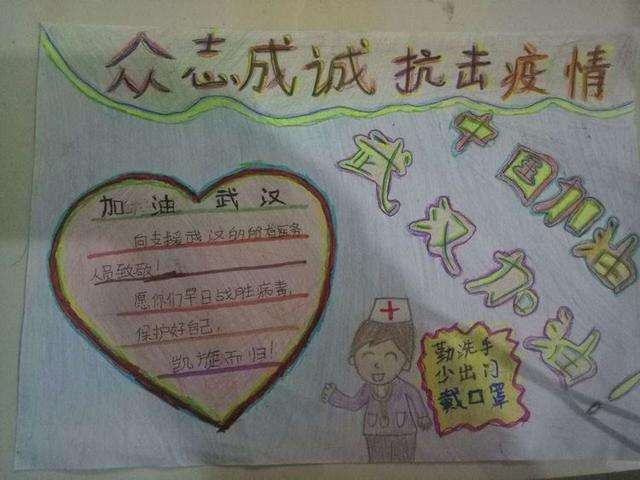 众志成诚 抗击疫情
中国加油
武汉加油
加油 武汉
向支援武汉的所有医务
人员致敬!
愿你们早日战胜病毒,
保护好自己,
凯旋而归!
勤洗手
少出门
戴口罩